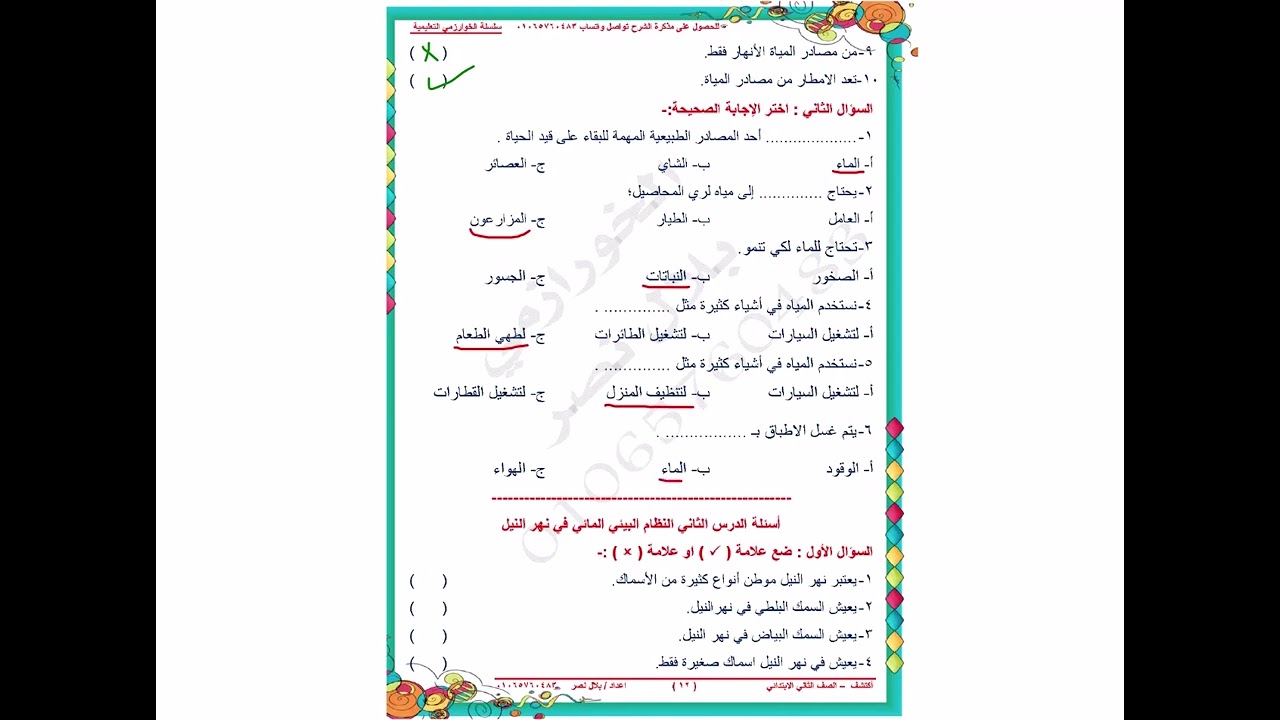 للحصول على مذكرة الشرح تواصل واتساب ٠١٠٦٥٧٦٠٤٨٣ سلسلة الخوارزمي التعليمية
٩-من مصادر المياة الأنهار فقط. ( X )
١٠-تعد الامطار من مصادر المياة. ( ✓ )
السؤال الثاني : اختر الإجابة الصحيحة:-
١- .................... أحد المصادر الطبيعية المهمة للبقاء على قيد الحياة .
أ- الماء ب- الشاي ج- العصائر
٢-يحتاج .............. إلى مياه لري المحاصيل؛
أ- العامل ب- الطيار ج- المزارعون
٣-تحتاج للماء لكي تنمو.
أ- الصخور ب- النباتات ج- الجسور
٤-نستخدم المياه في أشياء كثيرة مثل .............. .
أ- لتشغيل السيارات ب- لتشغيل الطائرات ج- لطهي الطعام
٥-نستخدم المياه في أشياء كثيرة مثل .............. .
أ- لتشغيل السيارات ب- لتنظيف المنزل ج- لتشغيل القطارات
٦-يتم غسل الاطباق بـ ................. .
أ- الوقود ب- الماء ج- الهواء
أسئلة الدرس الثاني النظام البيئي المائي في نهر النيل
السؤال الأول : ضع علامة ( ✓ ) او علامة ( × ) :-
١-يعتبر نهر النيل موطن أنواع كثيرة من الأسماك. ( )
٢-يعيش السمك البلطي في نهرالنيل. ( )
٣-يعيش السمك البياض في نهر النيل. ( )
٤-يعيش في نهر النيل اسماك صغيرة فقط. ( )
أكتشف – الصف الثاني الابتدائي ( ١٢ ) اعداد / بلال نصر ٠١٠٦٥٧٦٠٤٨٣
الخوارزمي
بلال نصر
01065760483